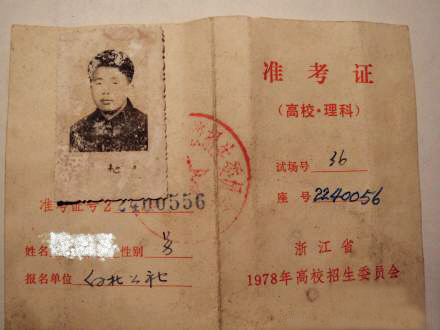 准考证号2240056
姓名 性别 男
报名单位 北公社
准考证
(高校·理科)
试场号 36
座号 2240056
浙江省
1978年高校招生委员会